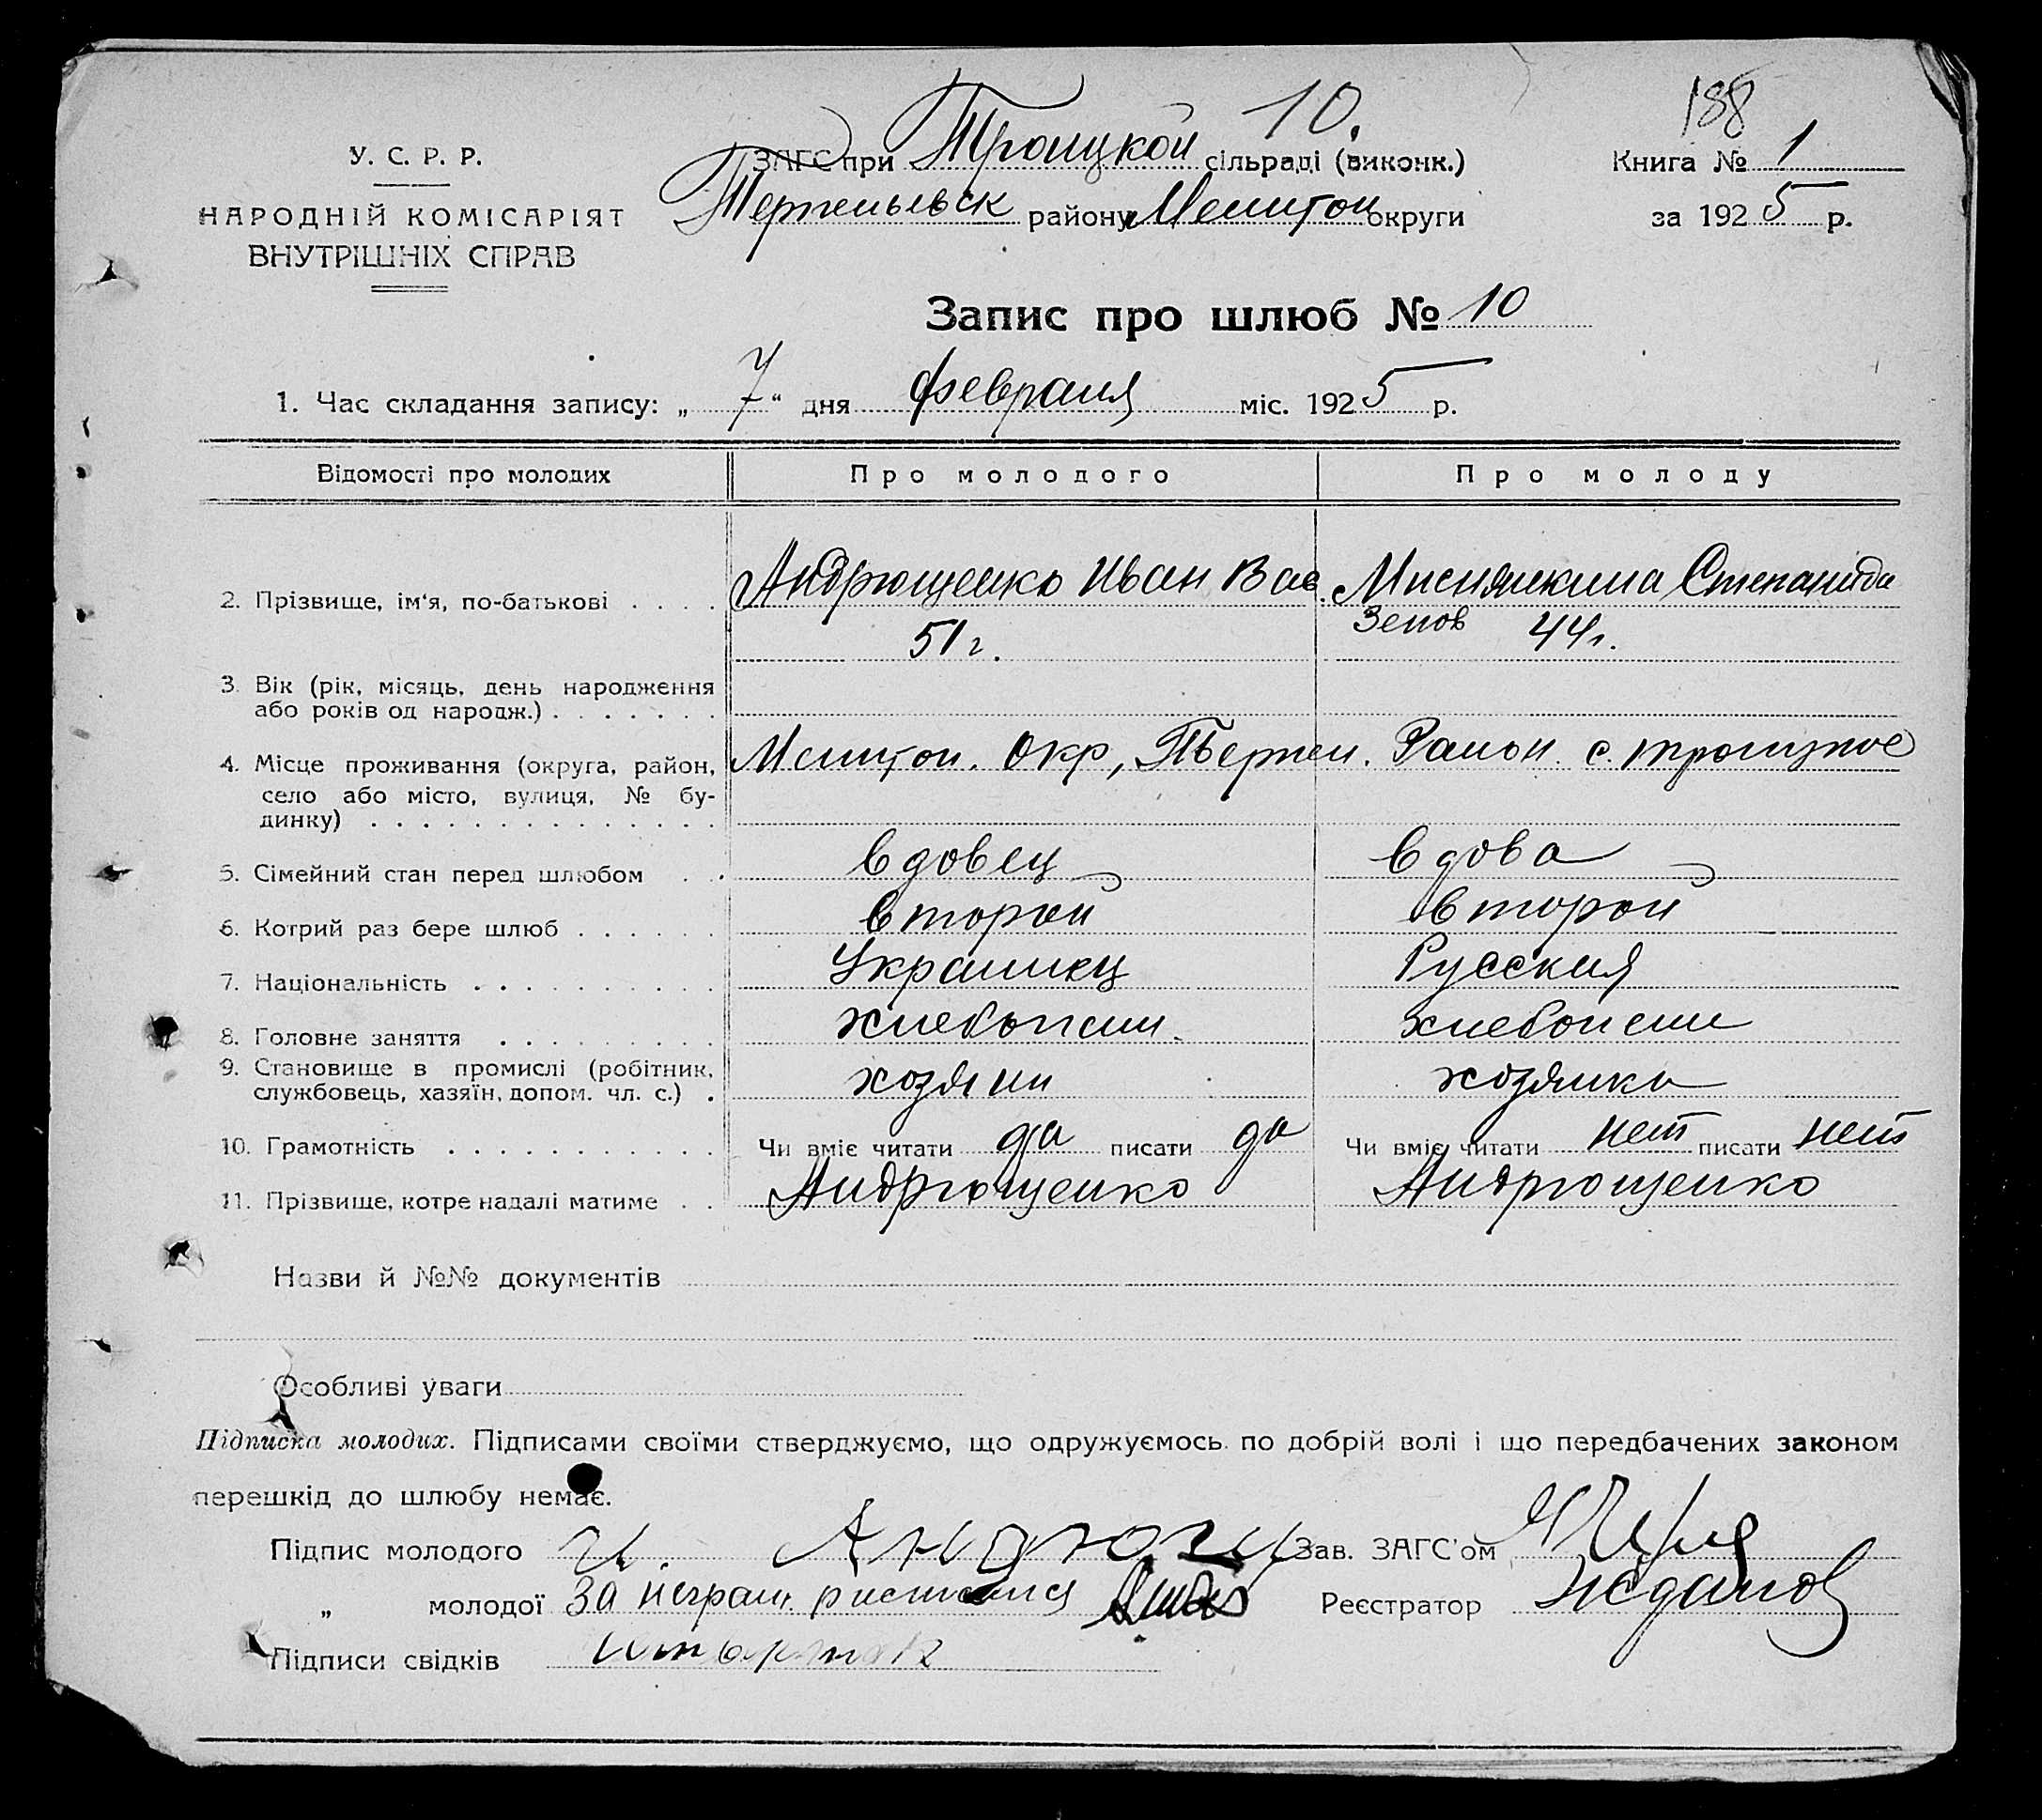 10.
188
У. С. Р. Р.
НАРОДНІЙ КОМІСАРІЯТ
ВНУТРІШНІХ СПРАВ
ЗАГС при Троицкой сільраді (виконк.)
района Мелитоп округи
Книга № 1
за 1925 р.
Запис про шлюб № 10
1. Час складання запису: „ 7 “ дня февраля міс. 1925 р.
Відомості про молодих
Про молодого
Про молоду
2. Прізвище, ім‘я, по-батькові . . . .
Андрющенко Иван Вас.
Степанида
51 г.
44 г.
3. Вік (рік, місяць, день народження
або років од народж.) . . . . . . .
4. Місце проживання (округа, район,
село або місто, вулиця, № бу-
динку) . . . . . . . . . . . . . .
Мелитоп. Окр, Район. с. троицкое
5. Сімейний стан перед шлюбом . .
вдовец
вдова
6. Котрий раз бере шлюб . . . . . .
второй
второй
7. Національність . . . . . . . . . .
Украинец
Русская
8. Головне заняття . . . . . . . . .
хлебопаш.
хлебопаш
9. Становище в промислі (робітник,
службовець, хазяїн, допом. чл. с.) .
хозяин
хозяйка
10. Грамотність . . . . . . . . . . .
Чи вміє читати да писати да
Чи вміє читати нет писати нет
11. Прізвище, котре надалі матиме . .
Андрющенко
Андрющенко
Назви й №№ документів
Особливі уваги
Підписка молодих. Підписами своїми стверджуємо, що одружуємось по добрій волі і що передбачених законом
перешкід до шлюбу немає.
Підпис молодого И. Андрющ
Зав. ЗАГС'ом
„ молодої За неграм.
Реєстратор
Підписи свідків